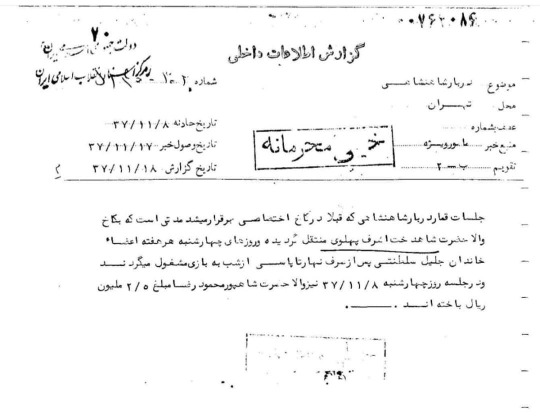 ۰۰۷۶۲۰۸۶
۷۰
گزارش اطلاعات داخلی
شماره ۱۰۲
مرکز اسناد انقلاب اسلامی ایران
موضوع دربار شاهنشاهی
محل تهران
عطف بشماره
منبع خبر مامور ویژه
تقویم ب ـ ۲
تاریخ حادثه ۳۷/۱۱/۸
تاریخ وصول خبر ۳۷/۱۱/۱۷
تاریخ گزارش ۳۷/۱۱/۱۸
خیلی محرمانه
جلسات قمار دربار شاهنشاهی که قبلا در کاخ اختصاصی برقرار میشد مدتی است که بکاخ
والا حضرت شاهدخت اشرف پهلوی منتقل گردیده و روزهای چهارشنبه هر هفته اعضاء
خاندان جلیل سلطنتی پس از صرف نهار تا پاسی از شب به بازی مشغول میگردند
و در جلسه روز چهارشنبه ۳۷/۱۱/۸ نیز والا حضرت شاهپور محمود رضا مبلغ ۲/۵ ملیون
ریال باخته اند .